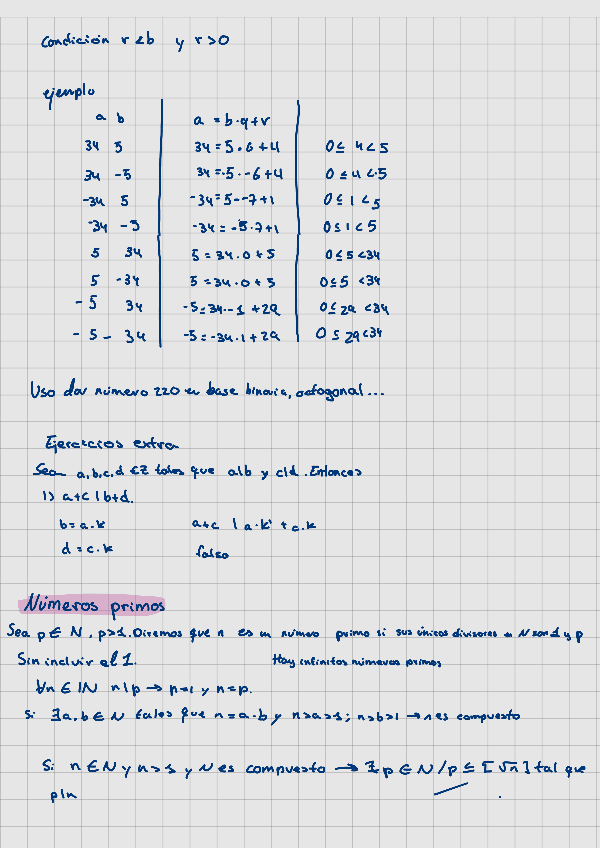 Condición r < b y r > 0
ejemplo
a b a = b·q+r
34 5 34 = 5·6+4 0 ≤ 4 < 5
34 -5 34 = -5·-6+4 0 ≤ 4 < 5
-34 5 -34 = 5·-7+1 0 ≤ 1 < 5
-34 -5 -34 = -5·7+1 0 ≤ 1 < 5
5 34 5 = 34·0+5 0 ≤ 5 < 34
5 -34 5 = 34·0+5 0 ≤ 5 < 34
-5 34 -5 = 34·-1+29 0 ≤ 29 < 34
-5 -34 -5 = -34·1+29 0 ≤ 29 < 34
Uso dar número 220 en base binaria, octogonal...
Ejercicios extra
Sea a,b,c,d ∈ Z tales que a|b y c|d. Entonces
1) a+c | b+d.
b = a·k a+c | a·k' + c·k
d = c·k falso
Números primos
Sea p ∈ N, p>1. Diremos que n es un número primo si sus únicos divisores en N son 1 y p
Sin incluir el 1. Hay infinitos números primos
∀n ∈ IN n|p → n=1 y n=p.
si ∃a,b ∈ N tales que n=a·b y n>a>1; n>b>1 → n es compuesto
Si n ∈ N y n>1 y N es compuesto → ∃p ∈ N / p ≤ [√n] tal que
p|n